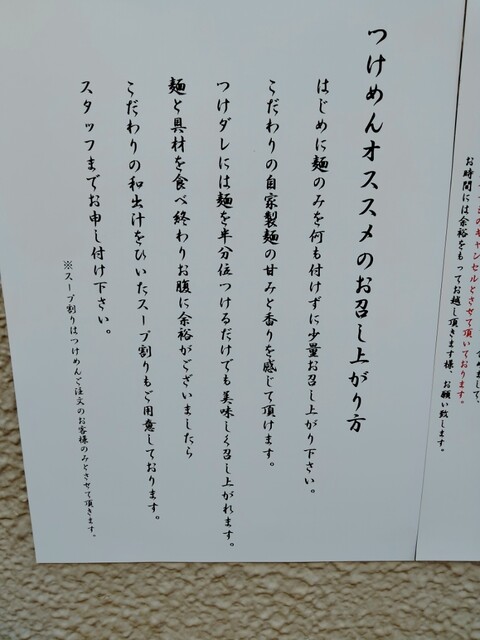 つけめんオススメのお召し上がり方
はじめに麺のみを何も付けずに少量お召し上がり下さい。
こだわりの自家製麺の甘みと香りを感じて頂けます。
つけダレには麺を半分位つけるだけでも美味しく召し上がれます。
麺と具材を食べ終わりお腹に余裕がございましたら
こだわりの和出汁をひいたスープ割りもご用意しております。
スタッフまでお申し付け下さい。
※スープ割りはつけめんご注文のお客様のみとさせて頂きます。
のキャンセルとさせて頂いております。
お時間には余裕をもってお越し頂きます様、お願い致します。